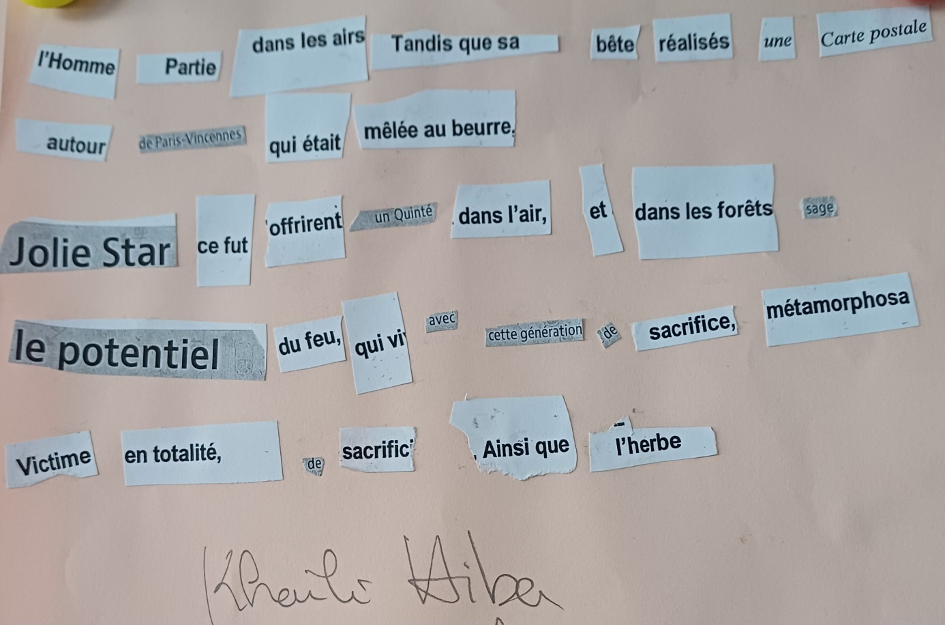 l'Homme Partie dans les airs Tandis que sa bête réalisés une Carte postale
autour de Paris-Vincennes qui était mêlée au beurre.
Jolie Star ce fut 'offrirent un Quinté dans l'air, et dans les forêts sage,
le potentiel du feu, qui vi avec cette génération de sacrifice, métamorphosa
Victime en totalité, de sacrific Ainsi que l'herbe
Khaili Hiba